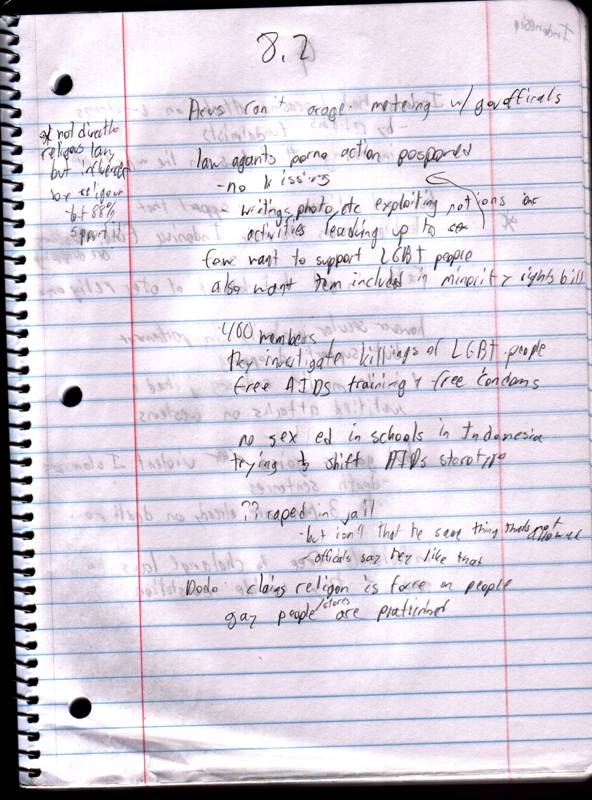 8.2
Arus ronit orage meeting w/ gov officals
* not directle
religous law,
but infulenced
by religon
b/c 88%
support it
law agants porno action posponed
-no kissing
- writings, photo, etc exploiting notions or
activities leading up to sex
few want to support LGBT people
also want tem included in minority rights bill
400 members
they investigate killings of LGBT people
free AIDs training & free condoms
no sex ed in schools in Indonesia
trying to shift AIDs sterotype
?? raped in jail
-but isn't that he same thing thats not allowed
- officals say hey like that
Dodo: claims religon is force on people
gay people/stores are